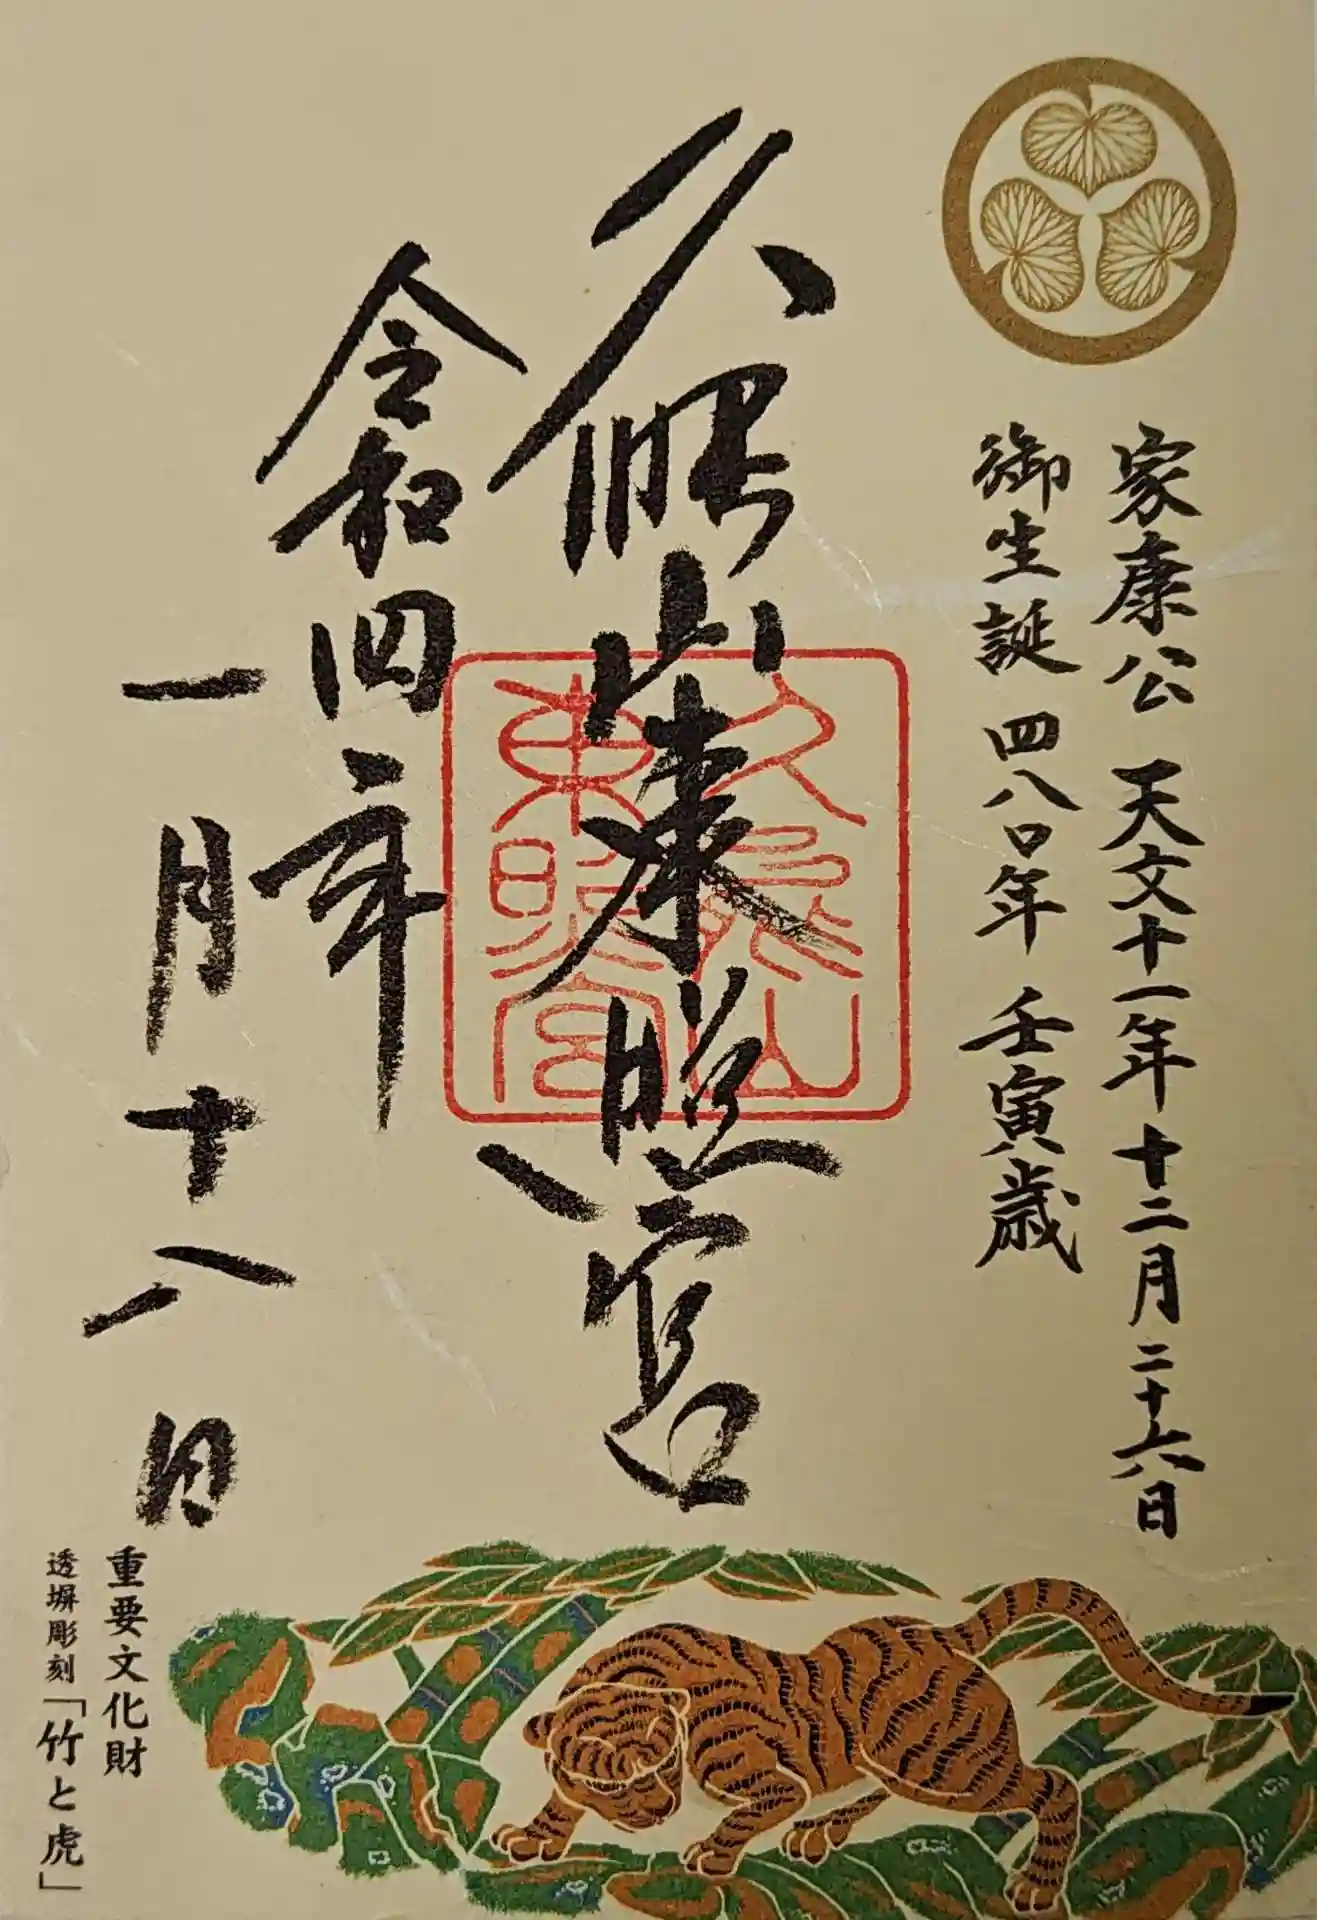 家康公 天文十一年 十二月二十六日
御生誕 四八〇年 壬寅歳
久能山東照宮
久能山
東照宮
令和四年
一月十八日
重要文化財
透塀彫刻「竹と虎」